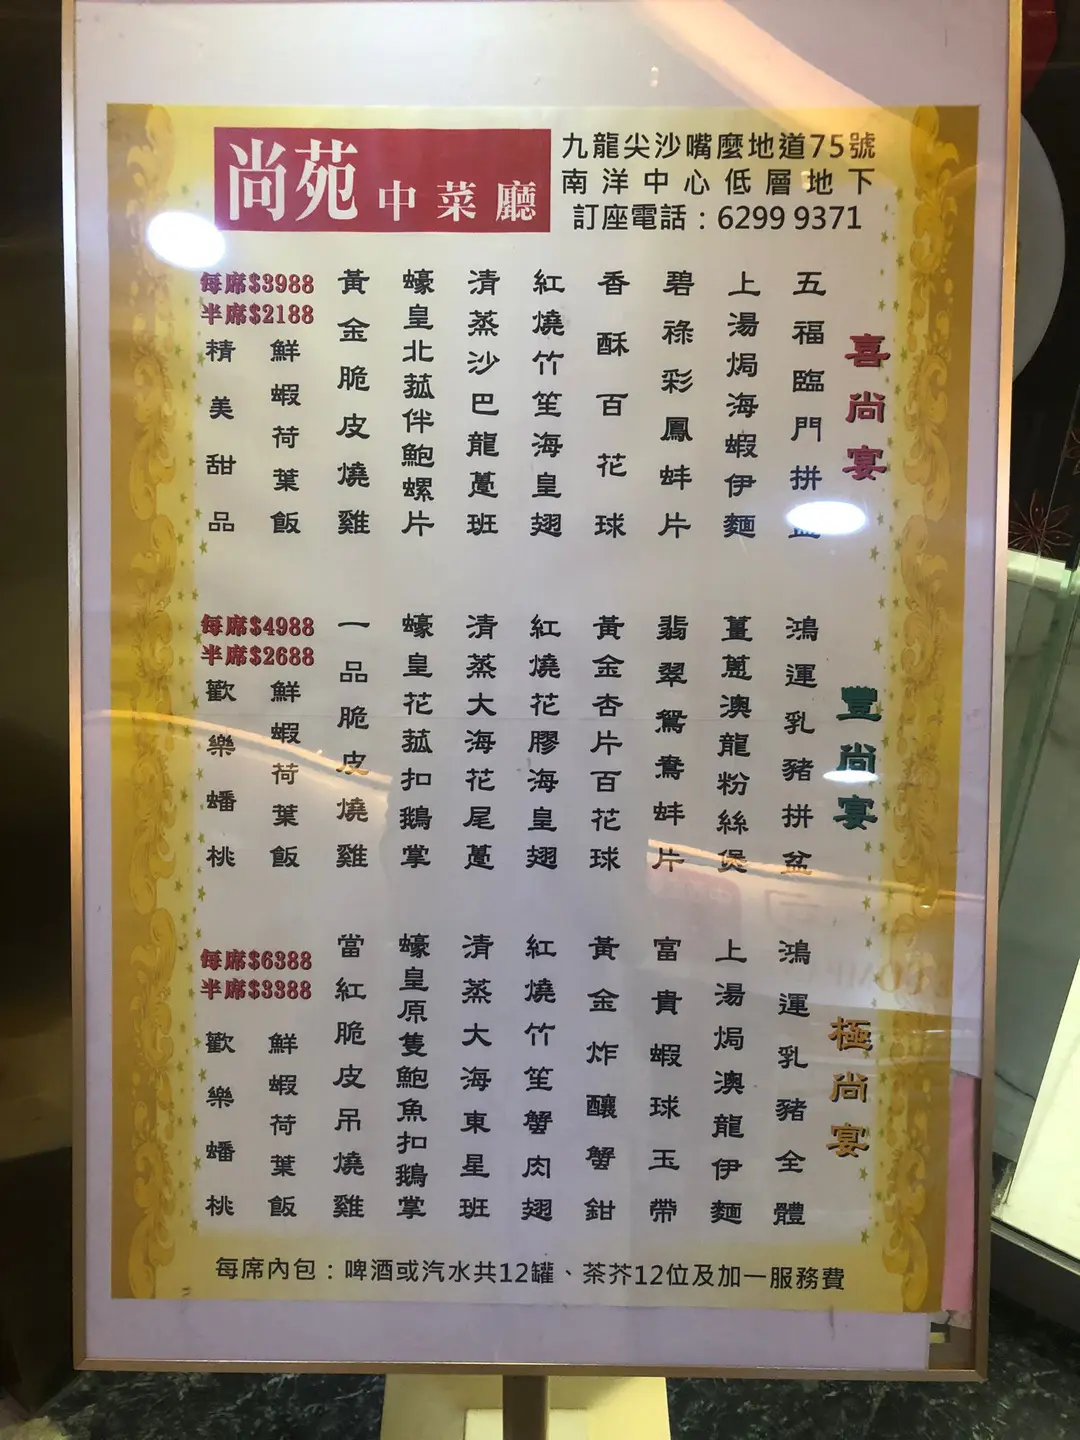 尚苑 中菜廳
九龍尖沙嘴麼地道75號
南洋中心低層地下
訂座電話：6299 9371
喜尚宴
五福臨門拼盆
上湯焗海蝦伊麵
碧祿彩鳳蚌片
香酥百花球
紅燒竹笙海皇翅
清蒸沙巴龍躉班
蠔皇北菰伴鮑螺片
黃金脆皮燒雞
鮮蝦荷葉飯
精美甜品
每席$3988
半席$2188
豐尚宴
鴻運乳豬拼盆
薑蔥澳龍粉絲煲
翡翠鴛鴦蚌片
黃金杏片百花球
紅燒花膠海皇翅
清蒸大海花尾躉
蠔皇花菰扣鵝掌
一品脆皮燒雞
鮮蝦荷葉飯
歡樂蟠桃
每席$4988
半席$2688
極尚宴
鴻運乳豬全體
上湯焗澳龍伊麵
富貴蝦球玉帶
黃金炸釀蟹鉗
紅燒竹笙蟹肉翅
清蒸大海東星班
蠔皇原隻鮑魚扣鵝掌
當紅脆皮吊燒雞
鮮蝦荷葉飯
歡樂蟠桃
每席$6388
半席$3388
每席內包：啤酒或汽水共12罐、茶芥12位及加一服務費